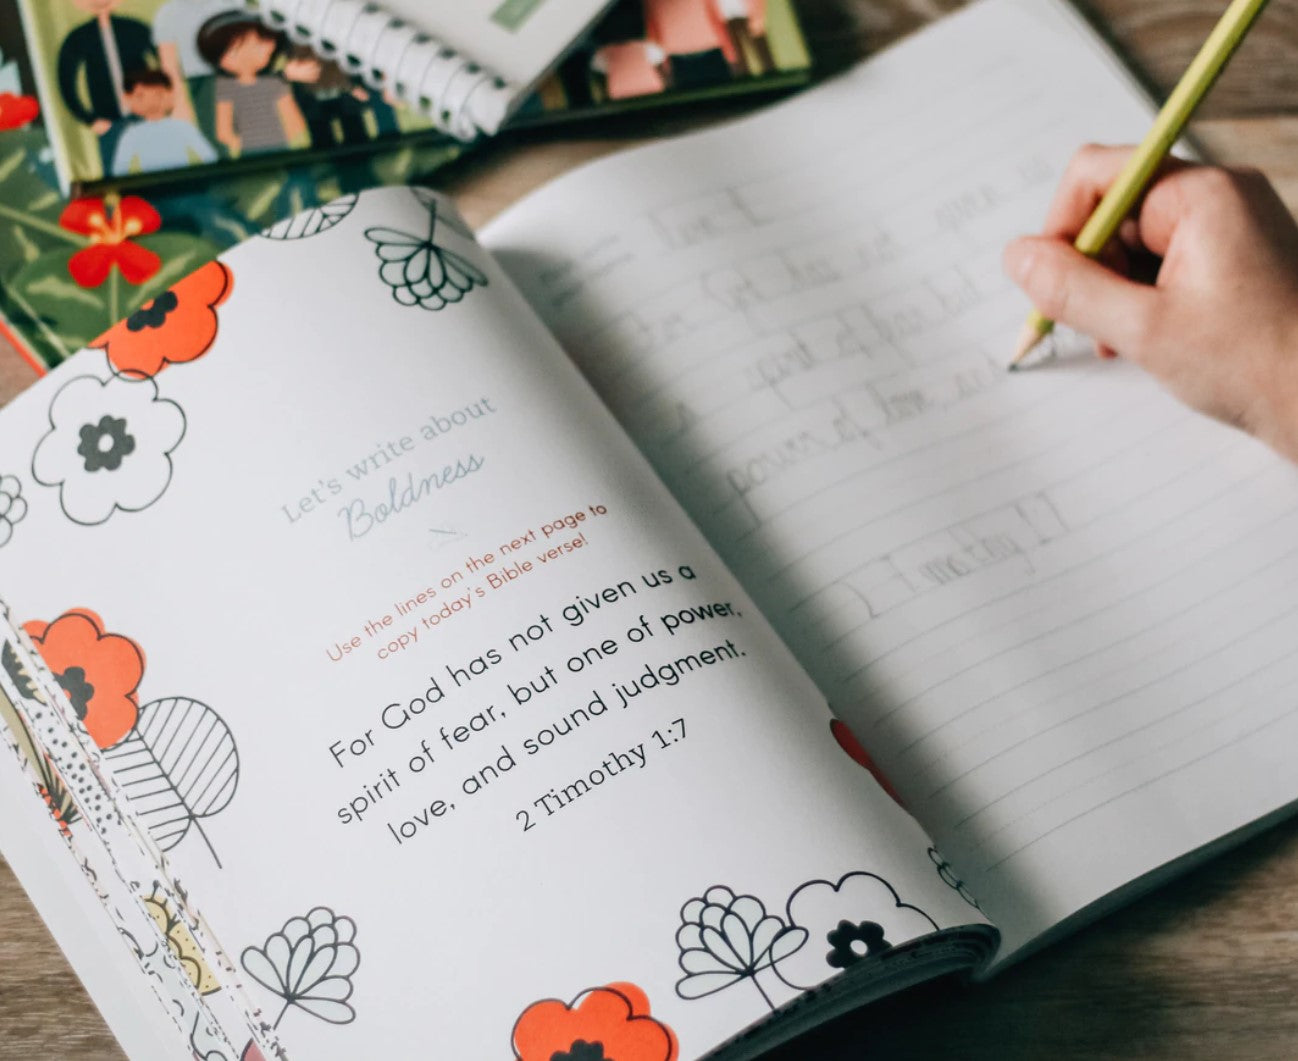 Let's write about
Boldness
Use the lines on the next page to
copy today's Bible verse!
For God has not given us a
spirit of fear, but one of power,
love, and sound judgment.
2 Timothy 1:7
For God has not given us
a spirit of fear but
power of love, and
2 Timothy 1:7